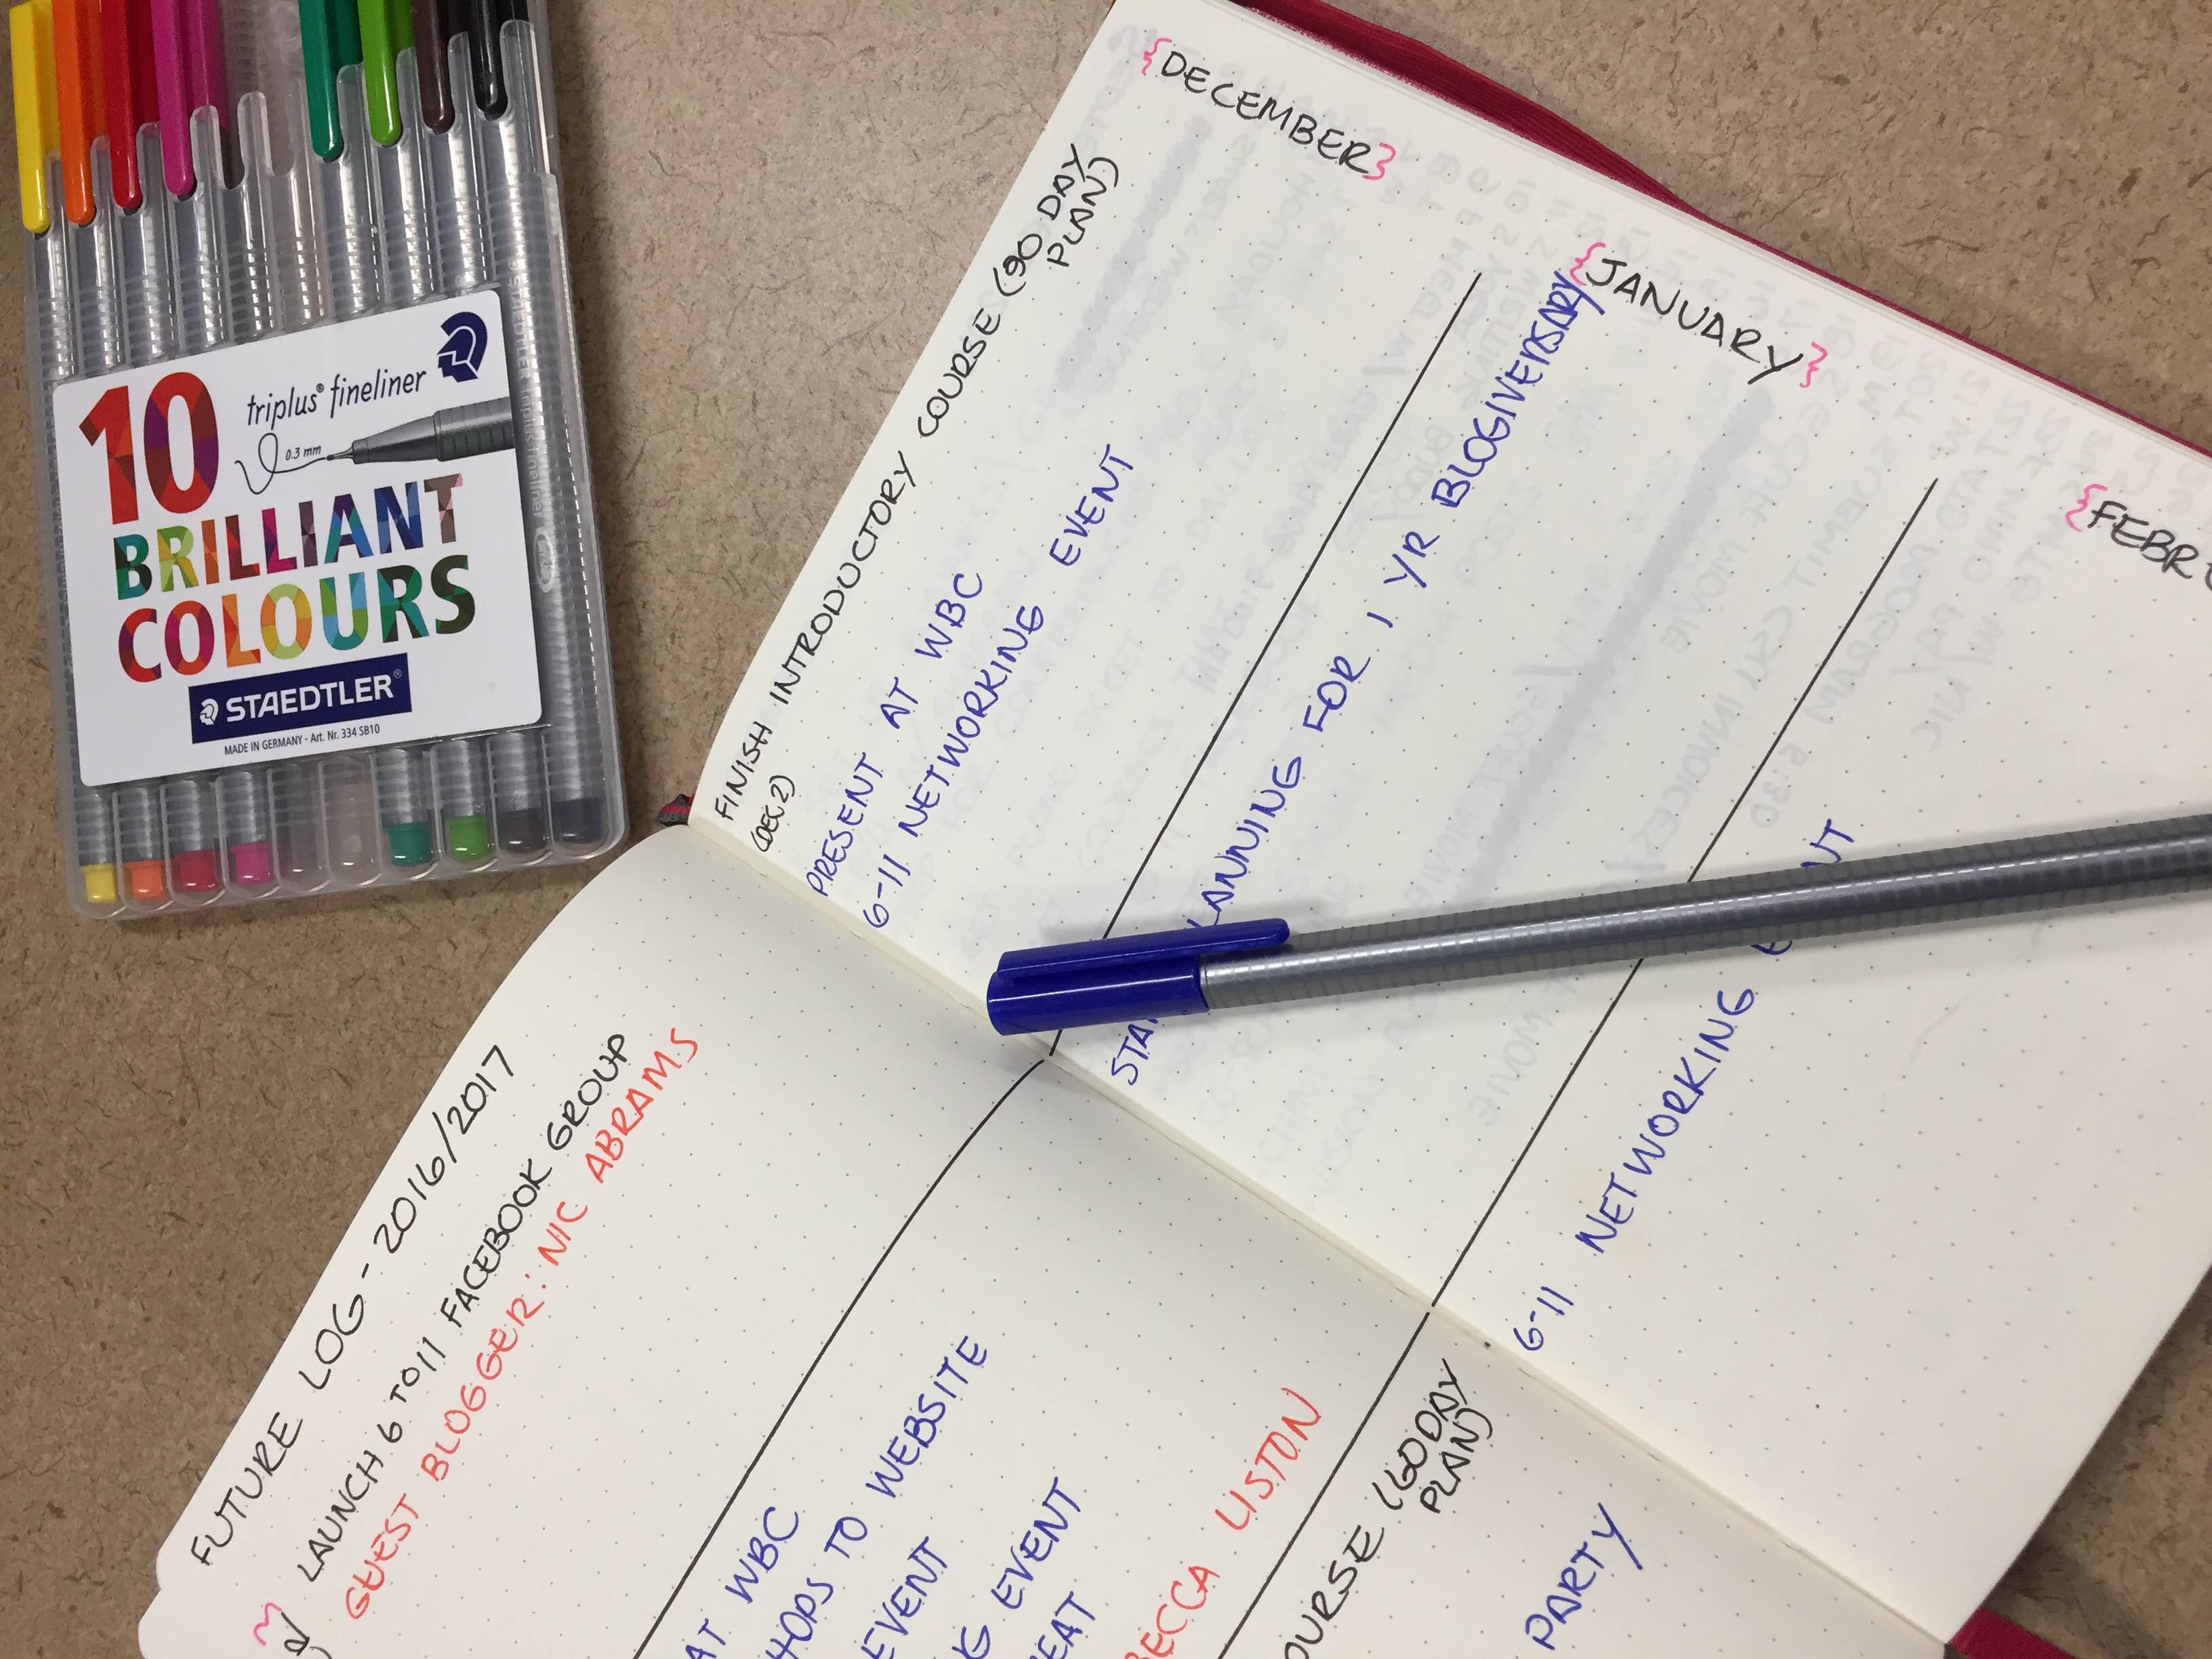 10
triplus® fineliner
0.3 mm
BRILLIANT
COLOURS
STAEDTLER®
MADE IN GERMANY - Art. Nr. 334 SB10
{DECEMBER}
FINISH INTRODUCTORY COURSE (90 DAY
PLAN)
(DEC 2)
PRESENT AT WBC
6-11 NETWORKING EVENT
{JANUARY}
PLANNING FOR 1 YR BLOGIVERSARY
6-11 NETWORKING
FUTURE LOG - 2016/2017
LAUNCH 6 TO 11 FACEBOOK GROUP
GUEST BLOGGER: NIC ABRAMS
AT WBC
TO WEBSITE
EVENT
EVENT
LISTON
(60 DAY
PLAN)
PARTY